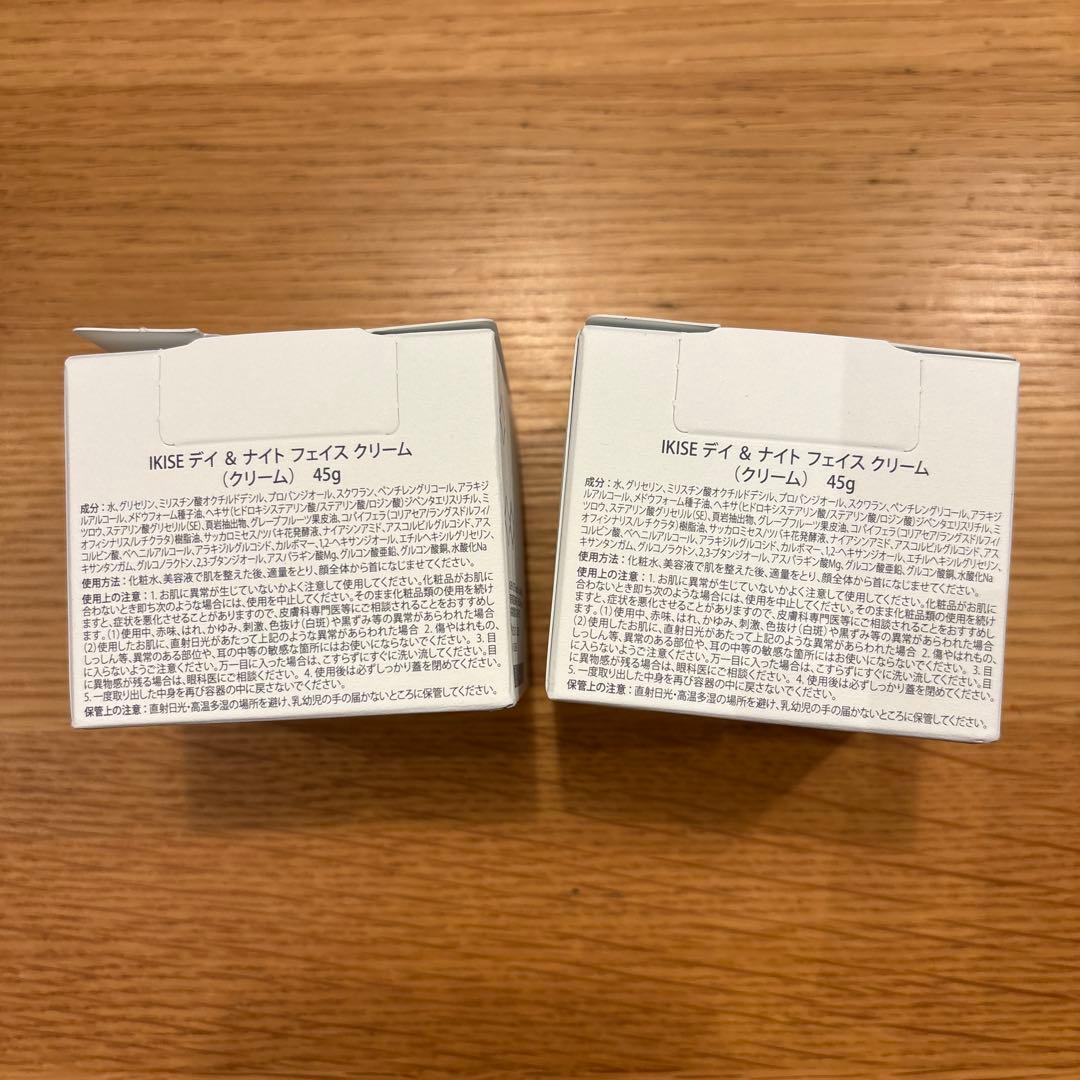 IKISE デイ & ナイト フェイス クリーム
（クリーム） 45g
成分：水、グリセリン、ミリスチン酸オクチルドデシル、プロパンジオール、スクワラン、ペンチレングリコール、アラキジ
ルアルコール、メドウフォーム種子油、ヘキサ(ヒドロキシステアリン酸/ステアリン酸/ロジン酸)ジペンタエリスリチル、ミ
ツロウ、ステアリン酸グリセリル(SE)、頁岩抽出物、グレープフルーツ果皮油、コパイフェラ(コリアセア/ラングスドルフィ/
オフィシナリス/レチクラタ)樹脂油、サッカロミセス/ツバキ花発酵液、ナイアシンアミド、アスコルビルグルコシド、アス
コルビン酸、ベヘニルアルコール、アラキジルグルコシド、カルボマー、1,2-ヘキサンジオール、エチルヘキシルグリセリン、
キサンタンガム、グルコノラクトン、2,3-ブタンジオール、アスパラギン酸Mg、グルコン酸亜鉛、グルコン酸銅、水酸化Na
使用方法：化粧水、美容液で肌を整えた後、適量をとり、顔全体から首になじませてください。
使用上の注意：1. お肌に異常が生じていないかよく注意して使用してください。化粧品がお肌に
合わないとき即ち次のような場合には、使用を中止してください。そのまま化粧品類の使用を続け
ますと、症状を悪化させることがありますので、皮膚科専門医等にご相談されることをおすすめし
ます。(1)使用中、赤味、はれ、かゆみ、刺激、色抜け(白斑)や黒ずみ等の異常があらわれた場合
(2)使用したお肌に、直射日光があたって上記のような異常があらわれた場合 2. 傷やはれもの、
しっしん等、異常のある部位や、耳の中等の敏感な箇所にはお使いにならないでください。3. 目
に入らないようご注意ください。万一目に入った場合は、こすらずにすぐに洗い流してください。目
に異物感が残る場合は、眼科医にご相談ください。4. 使用後は必ずしっかり蓋を閉めてください。
5. 一度取り出した中身を再び容器の中に戻さないでください。
保管上の注意：直射日光・高温多湿の場所を避け、乳幼児の手の届かないところに保管してください。
IKISE デイ & ナイト フェイス クリーム
（クリーム） 45g
成分：水、グリセリン、ミリスチン酸オクチルドデシル、プロパンジオール、スクワラン、ペンチレングリコール、アラキジ
ルアルコール、メドウフォーム種子油、ヘキサ(ヒドロキシステアリン酸/ステアリン酸/ロジン酸)ジペンタエリスリチル、ミ
ツロウ、ステアリン酸グリセリル(SE)、頁岩抽出物、グレープフルーツ果皮油、コパイフェラ(コリアセア/ラングスドルフィ/
オフィシナリス/レチクラタ)樹脂油、サッカロミセス/ツバキ花発酵液、ナイアシンアミド、アスコルビルグルコシド、アス
コルビン酸、ベヘニルアルコール、アラキジルグルコシド、カルボマー、1,2-ヘキサンジオール、エチルヘキシルグリセリン、
キサンタンガム、グルコノラクトン、2,3-ブタンジオール、アスパラギン酸Mg、グルコン酸亜鉛、グルコン酸銅、水酸化Na
使用方法：化粧水、美容液で肌を整えた後、適量をとり、顔全体から首になじませてください。
使用上の注意：1. お肌に異常が生じていないかよく注意して使用してください。化粧品がお肌に
合わないとき即ち次のような場合には、使用を中止してください。そのまま化粧品類の使用を続け
ますと、症状を悪化させることがありますので、皮膚科専門医等にご相談されることをおすすめし
ます。(1)使用中、赤味、はれ、かゆみ、刺激、色抜け(白斑)や黒ずみ等の異常があらわれた場合
(2)使用したお肌に、直射日光があたって上記のような異常があらわれた場合 2. 傷やはれもの、
しっしん等、異常のある部位や、耳の中等の敏感な箇所にはお使いにならないでください。3. 目
に入らないようご注意ください。万一目に入った場合は、こすらずにすぐに洗い流してください。目
に異物感が残る場合は、眼科医にご相談ください。4. 使用後は必ずしっかり蓋を閉めてください。
5. 一度取り出した中身を再び容器の中に戻さないでください。
保管上の注意：直射日光・高温多湿の場所を避け、乳幼児の手の届かないところに保管してください。